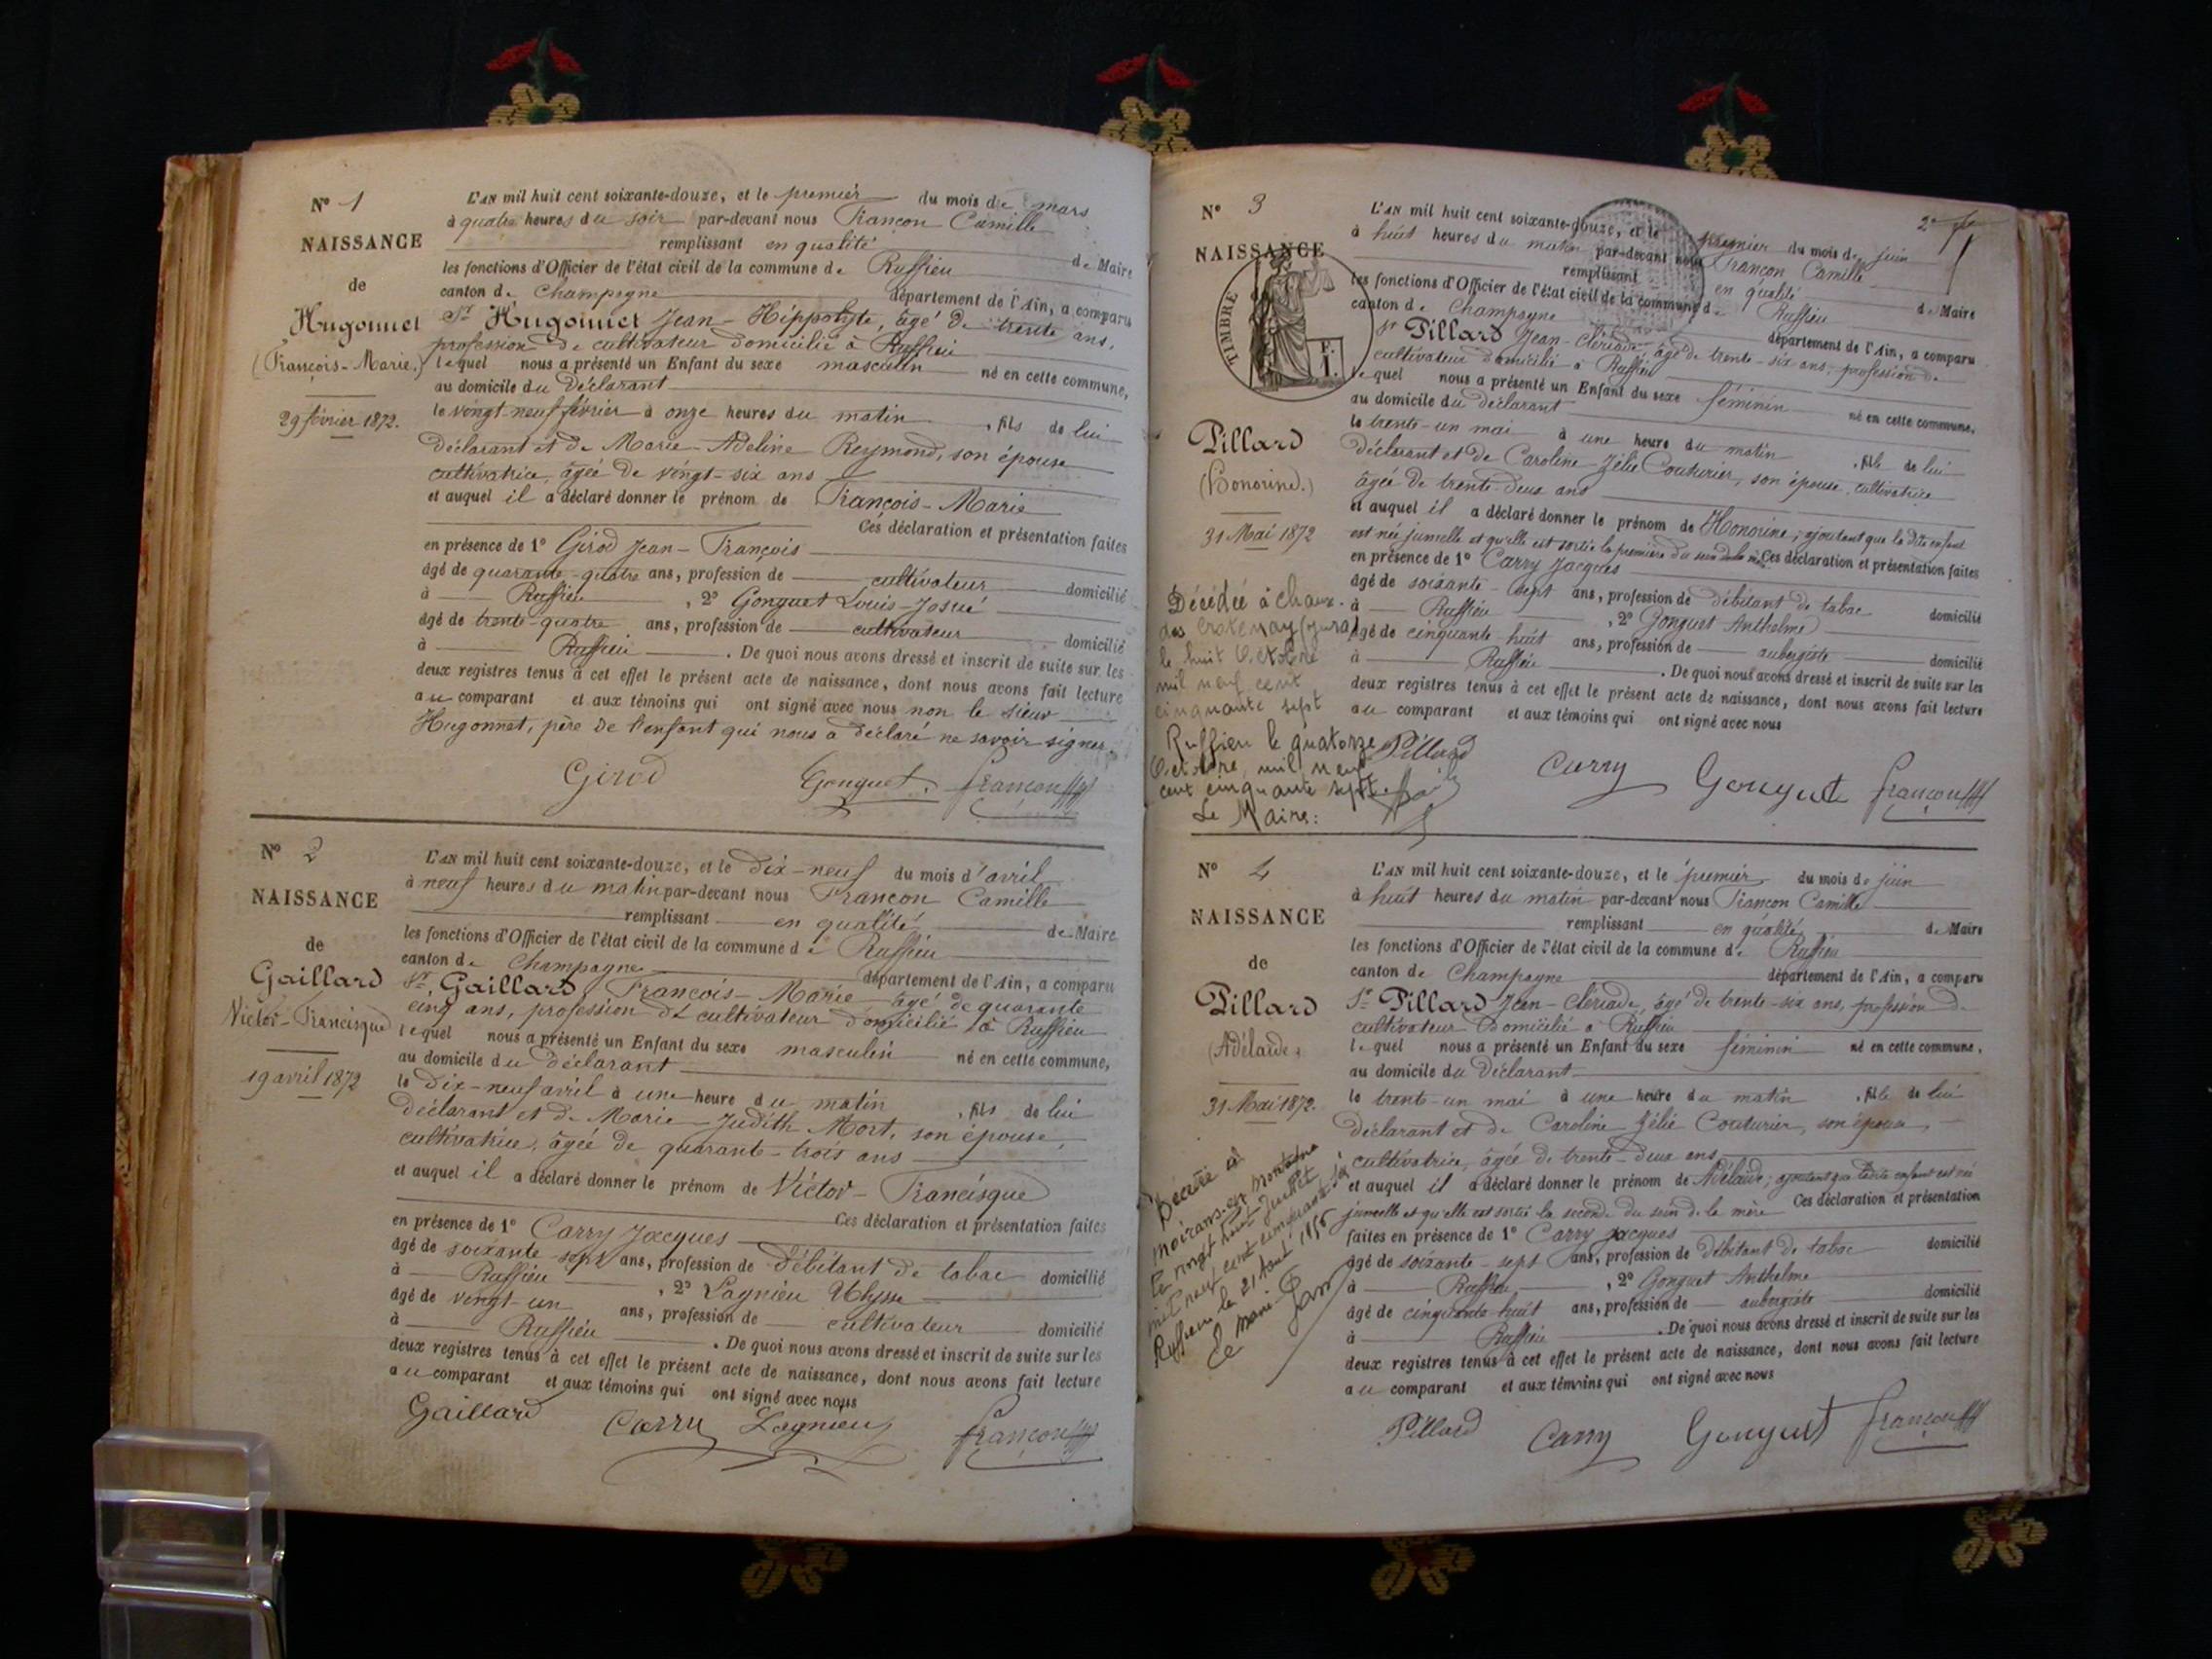 N° 1
NAISSANCE
de
Hugonnet
(François-Marie.)
29 février 1872.
L'AN mil huit cent soixante-douze, et le premier du mois de mars
à quatre heures du soir par-devant nous Françon Camille
remplissant en qualité de Maire
les fonctions d'Officier de l'état civil de la commune de Ruffieu
canton de Champagne département de l'Ain, a comparu
Sr Hugonnet Jean-Hippolyte, âgé de trente ans,
profession de cultivateur domicilié à Ruffieu
lequel nous a présenté un Enfant du sexe masculin né en cette commune,
au domicile du déclarant
le vingt-neuf février à onze heures du matin, fils de lui
déclarant et de Marie-Adeline Reymond, son épouse
cultivatrice, âgée de vingt-six ans
et auquel il a déclaré donner le prénom de François-Marie
Ces déclaration et présentation faites
en présence de 1° Girod Jean-François
âgé de quarante-quatre ans, profession de cultivateur domicilié
à Ruffieu, 2° Gonguet Louis-Josué
âgé de trente-quatre ans, profession de cultivateur domicilié
à Ruffieu. De quoi nous avons dressé et inscrit de suite sur les
deux registres tenus à cet effet le présent acte de naissance, dont nous avons fait lecture
au comparant et aux témoins qui ont signé avec nous non le sieur
Hugonnet, père de l'enfant qui nous a déclaré ne savoir signer.
Girod Gonguet françon
N° 2
NAISSANCE
de
Gaillard
Victor-Francisque
19 avril 1872
L'AN mil huit cent soixante-douze, et le dix-neuf du mois d'avril
à neuf heures du matin par-devant nous Françon Camille
remplissant en qualité de Maire
les fonctions d'Officier de l'état civil de la commune de Ruffieu
canton de Champagne département de l'Ain, a comparu
Sr Gaillard François-Marie âgé de quarante
cinq ans, profession de cultivateur domicilié à Ruffieu
lequel nous a présenté un Enfant du sexe masculin né en cette commune,
au domicile du déclarant
le dix-neuf avril à une heure du matin, fils de lui
déclarant et de Marie-Judith Mort, son épouse,
cultivatrice, âgée de quarante-trois ans
et auquel il a déclaré donner le prénom de Victor-Francisque
Ces déclaration et présentation faites
en présence de 1° Carry Jacques
âgé de soixante-sept ans, profession de débitant de tabac domicilié
à Ruffieu, 2° Lagnieu Ulysse
âgé de vingt-un ans, profession de cultivateur domicilié
à Ruffieu. De quoi nous avons dressé et inscrit de suite sur les
deux registres tenus à cet effet le présent acte de naissance, dont nous avons fait lecture
au comparant et aux témoins qui ont signé avec nous
Gaillard Carry Lagnieu françon
2e
N° 3
NAISSANCE
TIMBRE
Pillard
(Honorine.)
31 Mai 1872
Décédée à Chaux-
des Crotenay (Jura)
le huit Octobre
mil neuf cent
cinquante sept
Ruffieu le quatorze
Octobre, mil neuf
cent cinquante sept
Le Maire:
L'AN mil huit cent soixante-douze, et le premier du mois de juin
à huit heures du matin par-devant nous Françon Camille
remplissant en qualité de Maire
les fonctions d'Officier de l'état civil de la commune de Ruffieu
canton de Champagne département de l'Ain, a comparu
Sr Pillard Jean-Clériade, âgé de trente-six ans, profession de
cultivateur domicilié à Ruffieu
lequel nous a présenté un Enfant du sexe féminin né en cette commune,
au domicile du déclarant
le trente-un mai à une heure du matin, fille de lui
déclarant et de Caroline Zélie Couturier, son épouse, cultivatrice
âgée de trente-deux ans
et auquel il a déclaré donner le prénom de Honorine; ajoutant que la dite enfant
est née jumelle et qu'elle est sortie la première du sein de la mère Ces déclaration et présentation faites
en présence de 1° Carry Jacques
âgé de soixante-sept ans, profession de débitant de tabac domicilié
à Ruffieu, 2° Gonguet Anthelme
âgé de cinquante huit ans, profession de aubergiste domicilié
à Ruffieu. De quoi nous avons dressé et inscrit de suite sur les
deux registres tenus à cet effet le présent acte de naissance, dont nous avons fait lecture
au comparant et aux témoins qui ont signé avec nous
Pillard Carry Gonguet françon
N° 4
NAISSANCE
de
Pillard
(Adélaïde)
31 Mai 1872.
Décédée à
Moirans-en-Montagne
le vingt huit Juillet
mil neuf cent cinquante six
Ruffieu le 21 Aout 1956
Le Maire
L'AN mil huit cent soixante-douze, et le premier du mois de juin
à huit heures du matin par-devant nous Françon Camille
remplissant en qualité de Maire
les fonctions d'Officier de l'état civil de la commune de Ruffieu
canton de Champagne département de l'Ain, a comparu
Sr Pillard Jean-Clériade, âgé de trente-six ans, profession de
cultivateur domicilié à Ruffieu
lequel nous a présenté un Enfant du sexe féminin né en cette commune,
au domicile du déclarant
le trente-un mai à une heure du matin, fille de lui
déclarant et de Caroline Zélie Couturier, son épouse,
cultivatrice, âgée de trente-deux ans
et auquel il a déclaré donner le prénom de Adélaïde; ajoutant que ladite enfant est née
jumelle et qu'elle est sortie la seconde du sein de la mère Ces déclaration et présentation
faites en présence de 1° Carry Jacques
âgé de soixante-sept ans, profession de débitant de tabac domicilié
à Ruffieu, 2° Gonguet Anthelme
âgé de cinquante-huit ans, profession de aubergiste domicilié
à Ruffieu. De quoi nous avons dressé et inscrit de suite sur les
deux registres tenus à cet effet le présent acte de naissance, dont nous avons fait lecture
au comparant et aux témoins qui ont signé avec nous
Pillard Carry Gonguet françon